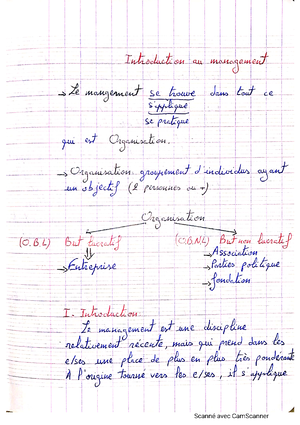 Introduction au management
→ Le mangement se trouve dans tout ce
s'applique
se pratique
qui est Organisation.
→ Organisation: groupement d'individus ayant
un objectif (2 personnes ou +)
Organisation
(O.B.L) But lucratif (O.B.N.L) But non lucratif
→ Association
→ Entreprise → Parties politique
→ fondation
I - Introduction
Le management est une discipline
relativement récente, mais qui prend dans les
e/ses une place de plus en plus très pondérante
A l'origine tourné vers les e/ses, il s'applique
Scanné avec CamScanner